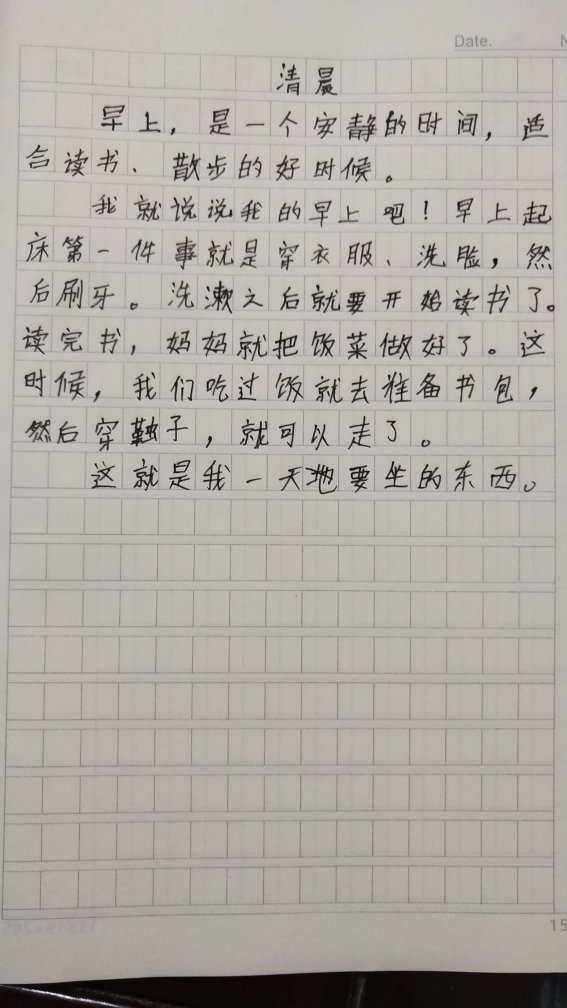 Date.
清晨
早上，是一个安静的时间，适
合读书、散步的好时候。
我就说说我的早上吧！早上起
床第一件事就是穿衣服、洗脸，然
后刷牙。洗漱之后就要开始读书了。
读完书，妈妈就把饭菜做好了。这
时候，我们吃过饭就去准备书包，
然后穿鞋子，就可以走了。
这就是我一天地要坐的东西。
15